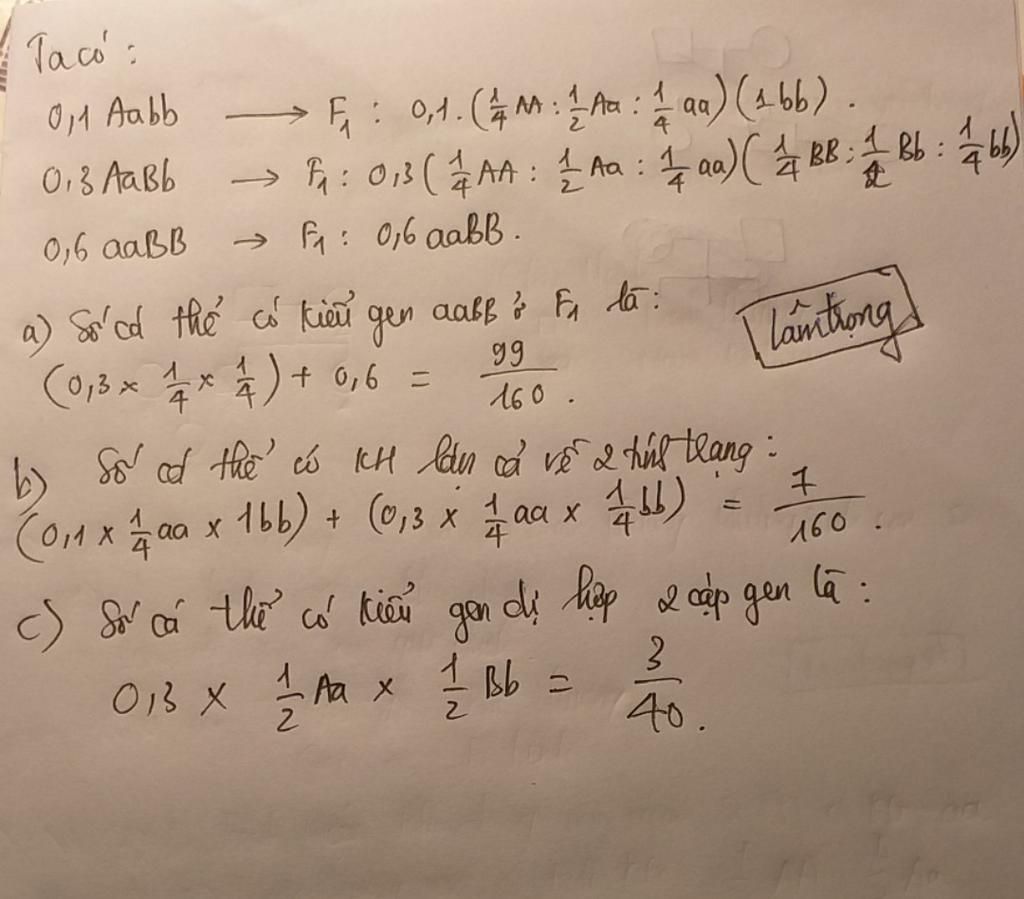 Ta có :
0,1 Aabb ⟶ F₁ : 0,1. (1/4 AA : 1/2 Aa : 1/4 aa) (1bb) .
0,3 AaBb → F₁ : 0,3 (1/4 AA : 1/2 Aa : 1/4 aa) (1/4 BB : 1/2 Bb : 1/4 bb)
0,6 aaBB → F₁ : 0,6 aaBB .
a) Số cá thể có kiểu gen aaBB ở F₁ là :
lâmtrọng
(0,3 × 1/4 × 1/4) + 0,6 = 99/160 .
b) Số cá thể có KH lặn cả về 2 tính trạng :
(0,1 × 1/4 aa × 1bb) + (0,3 × 1/4 aa × 1/4 bb) = 7/160 .
c) Số cá thể có kiểu gen dị hợp 2 cặp gen là :
0,3 × 1/2 Aa × 1/2 Bb = 3/40 .